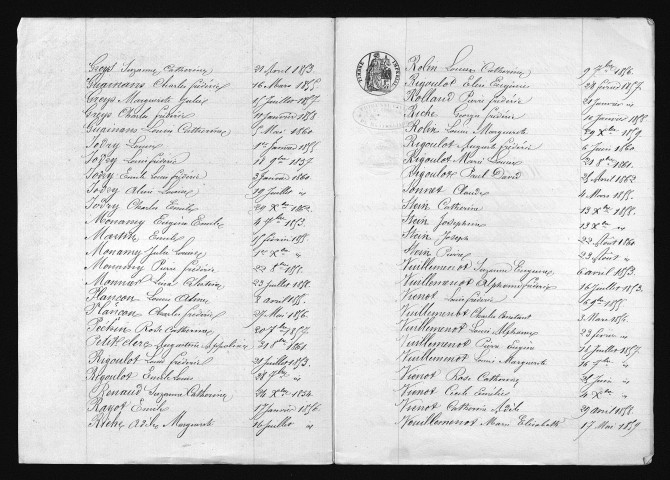 Greys Suzanne Catherine 21 Avril 1853.
Guemans Charles frédéric 16 Mars 1855.
Greys Marguerite Julie 15 Juillet 1857.
Greys Charles frédéric 10 Janvier 1858
Guemans Louise Catherine 5 Mai 1860
Jodry Louise 1er Janvier 1855
Jodry Louis frédéric 18 9bre 1857.
Jodry Emile Louis frédéric 3 Janvier 1860.
Jodry Aline Louise 19 Juillet
Jodry Charles Emile 1862.
Monamy Eugénie Emélie 4 1853.
Emile 15 février 1855.
Monamy Julie Louise 1er Xbre
Monamy Pierre frédéric 22 8bre 1855.
Monnard 23 Juillet 1858.
Plançon Louise 2 avril 1855.
Plançon Charles frédéric 27 Mai 1856.
Péchin Rose Catherine 20 7bre 1857.
Petit-Clerc Augustine Appoline 31 8bre 1861
Rigoulot Louis frédéric 21 Juillet 1853.
Rigoulot Emile Louis 28 7bre
Renaud Suzanne Catherine Xbre 1854.
Rayot Emile 17 Janvier 1856.
Riche Adèle Marguerite 16 Juillet
TIMBRE IMPÉRIAL
Robin Louise Catherine 9 7bre 1856.
Rigoulot Elise Eugénie 28 février 1857.
Rolland Pierre frédéric 20 Janvier
Riche Georges frédéric 10 Janvier 1858
Robin Louise Marguerite 29 Xbre 1859.
Rigoulot Auguste frédéric 6 Juin 1860
Rigoulot Marie Louise 31 8bre 1861.
Rigoulot Paul David 21 Avril 1862.
Sonnet Claude 4 Mars 1855.
Stein Catherine 13 Xbre 1858.
Stein Joséphine 13 Xbre
Stein Joseph 22 Août 1860
Stein Pierre 23 Août
Vuillemenot Suzanne Eugénie 6 avril 1853.
Vuillemenot Alphonse frédéric 16 Juillet 1853.
Vienot Louis frédéric 16 9bre 1855.
Vuillemenot Charles Constant 3 Mars 1856.
Vuillemenot Louis Alphonse 23 février
Vuillemenot Pierre Eugène 15 Juillet 1857.
Vuillemenot Louise Marguerite 16 7bre
Vienot Rose Catherine 21 Juin
Vienot Cécile Emélie 4 Xbre
Vienot Catherine Adèle 29 avril 1858.
Vuillemenot Marie Elisabeth 17 Mai 1859